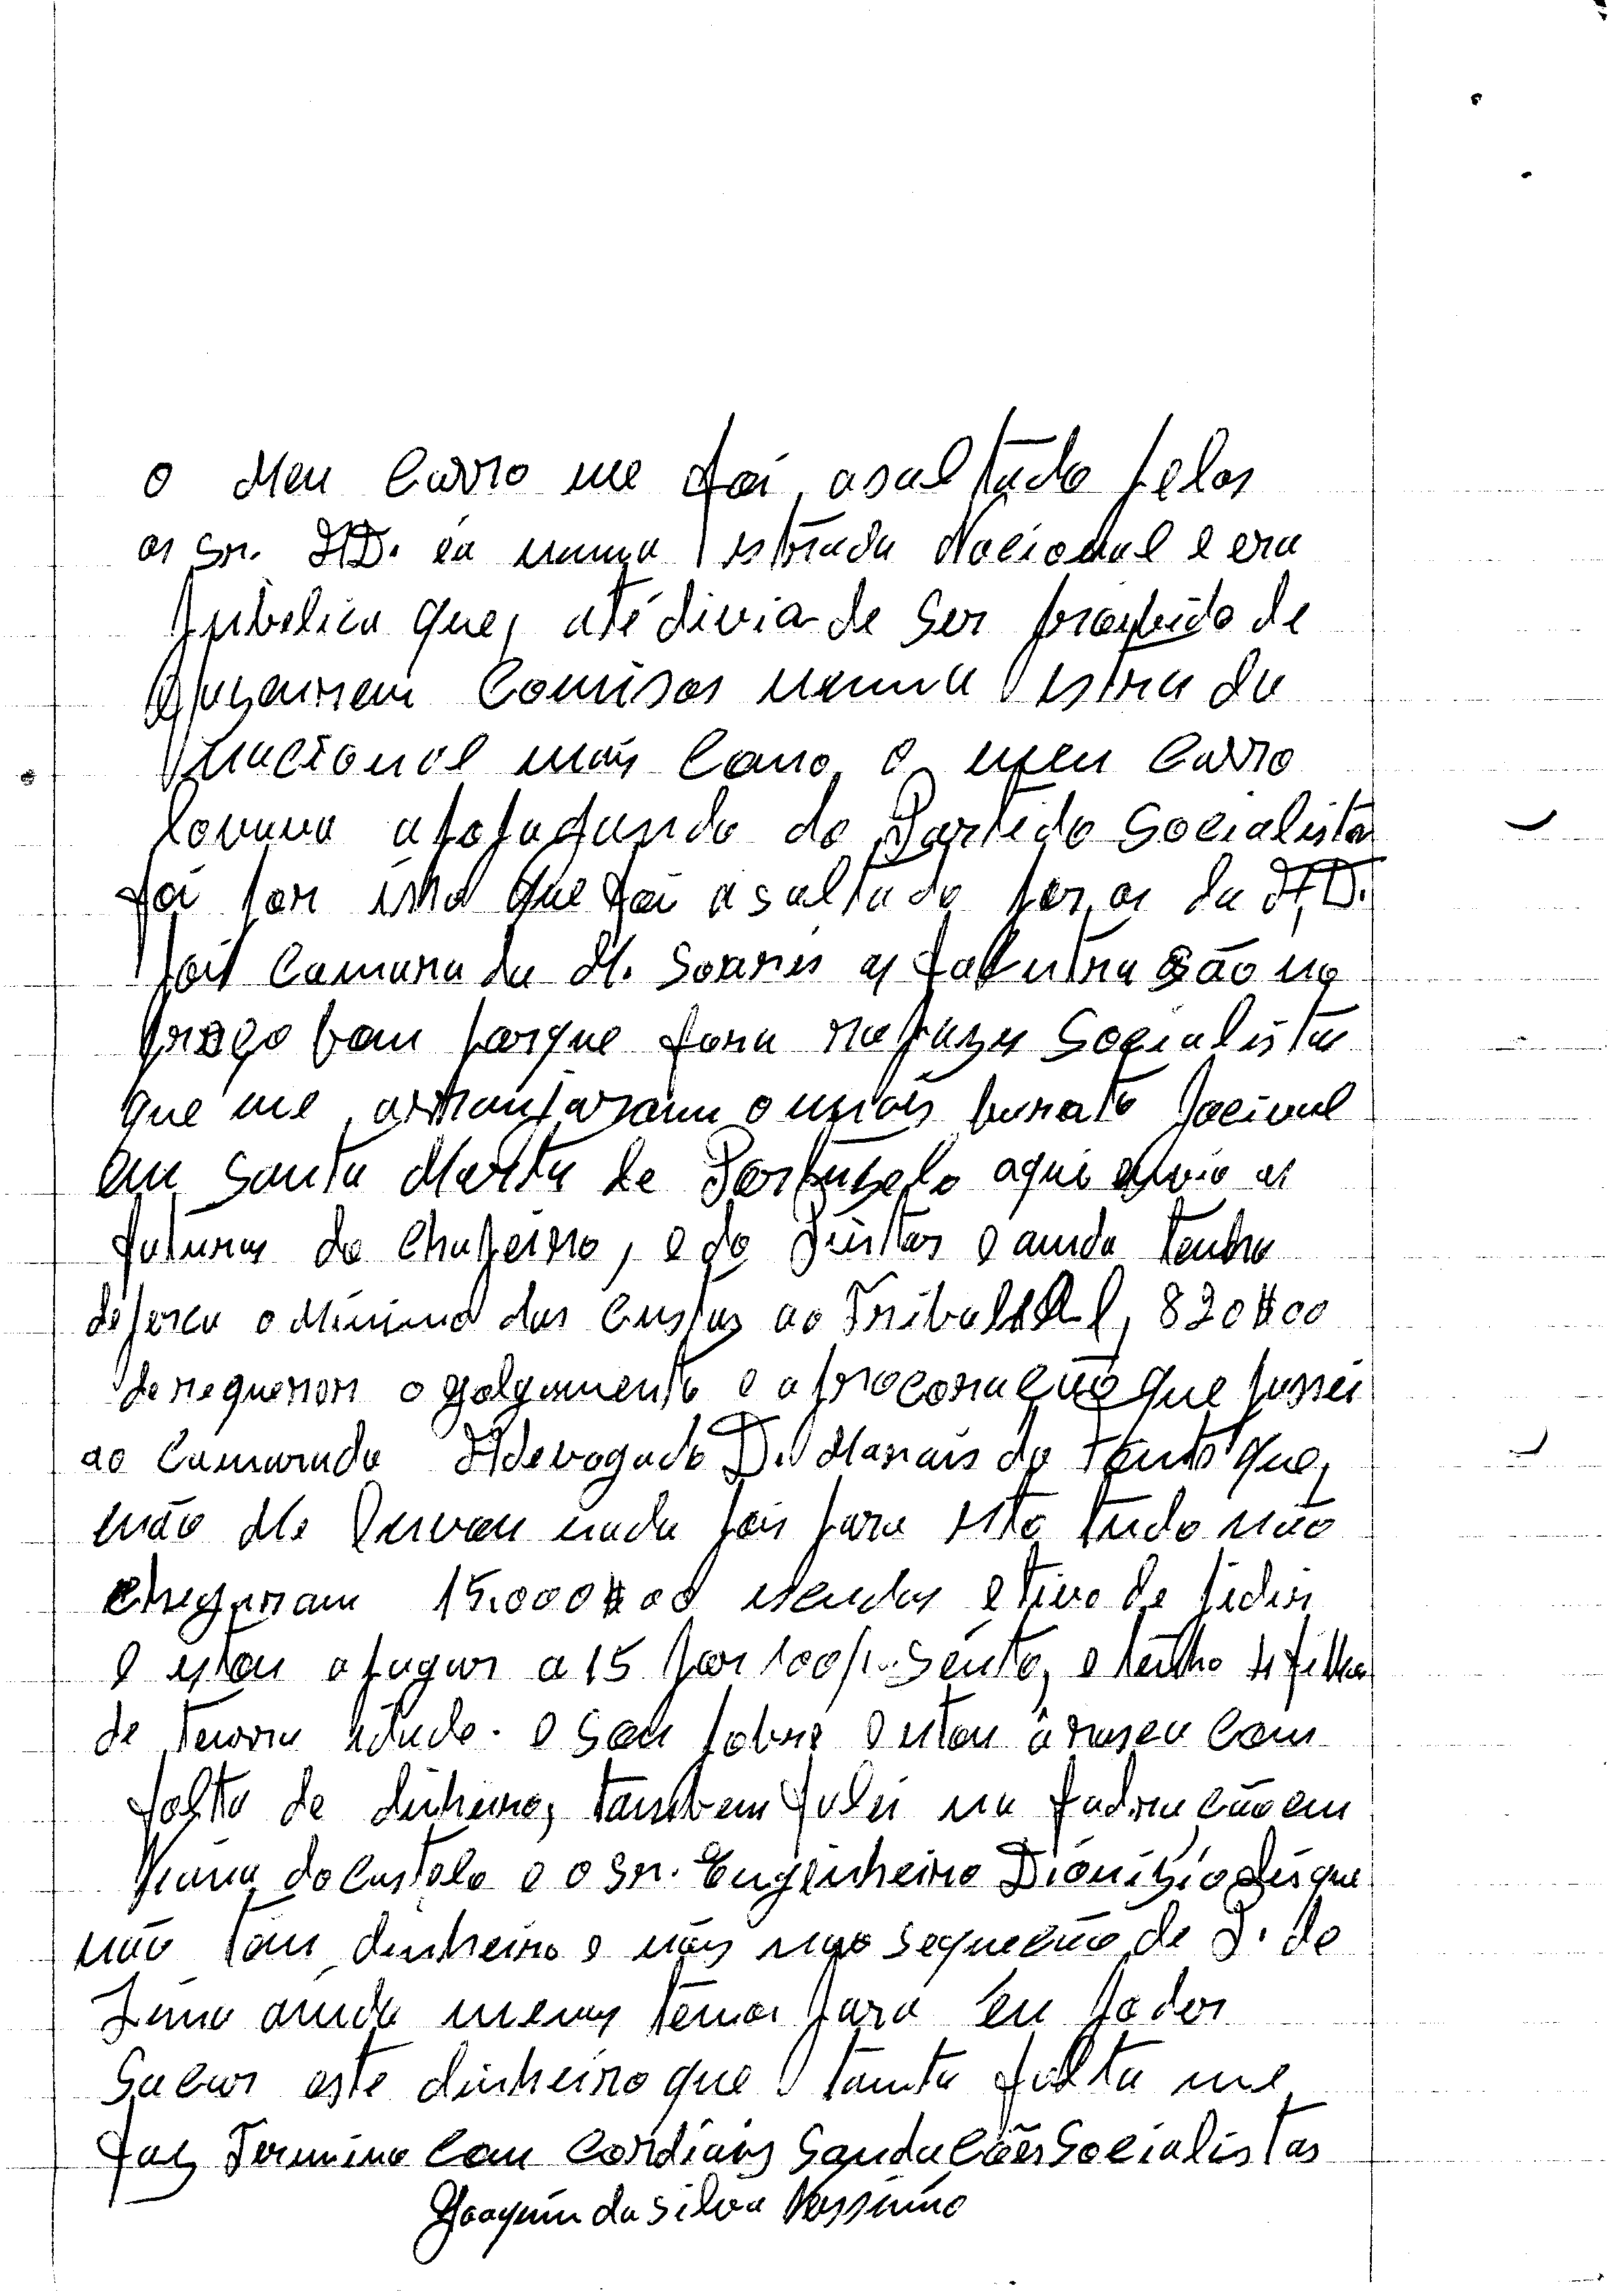 o Meu Carro me foi asaltado pelos
os sr. AD. en numa estrada Nacional e era
pubelica que, até divia de ser proybido de
fazarrem Comisos numa estra da
nacional mais Como o meu Carro
lovava apopaganda do Partido Socialista
foi por isso que foi asaltado por os da A,D.
pois Camara da M. Soares as faturas são no
preço bom porque fora rapazes Socialistas
que me arranjaram o mais barato pocivel
em Santa Marta de Portuzelo aqui envio as
faturas do Chapeirro, e do Pintor e ainda tenho
despesa o Minimo das Custas ao Tribunal, 820$00
de requerorr o golgamento e a procoracão que passei
ao Camarada Adevogado D. Marais do que,
não Me levou nada pois para isto tudo não
chegarram 15.000$00 escudos e tive de pidir
e estou a pagar a 15 por 100/. sento, e tenho filhos
de tenrra idade. e Sou pobre e estou a rasca com
falta de dinheiro, tambem falei na fadoracão em
Viana do Castelo e o Sr. Engenheiro Dionizio dis que
não tem dinheiro e nós na sequecão de P. do
Lima ainda menos temos para eu poder
Sacar este dinheirro que tanta falta me
faz Termino Com Cordiais Saudacões Socialistas
Joaquim da Silva